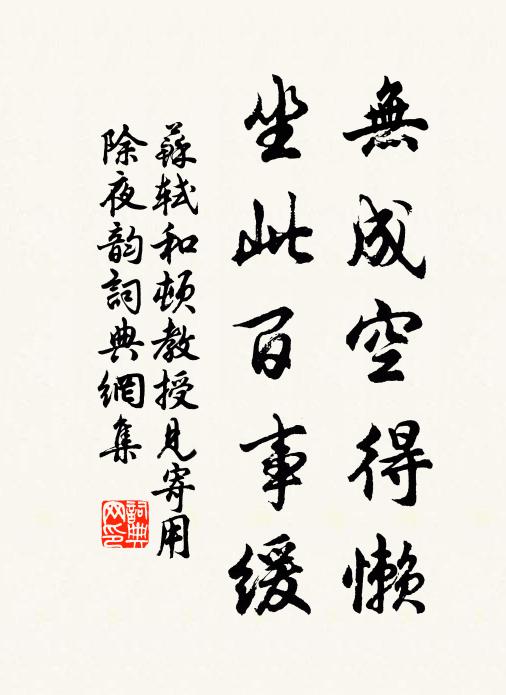 無成空得懶
坐此百事緩
蘇軾和頓教授見寄用
除夜韵詞典網集
詞典
网印